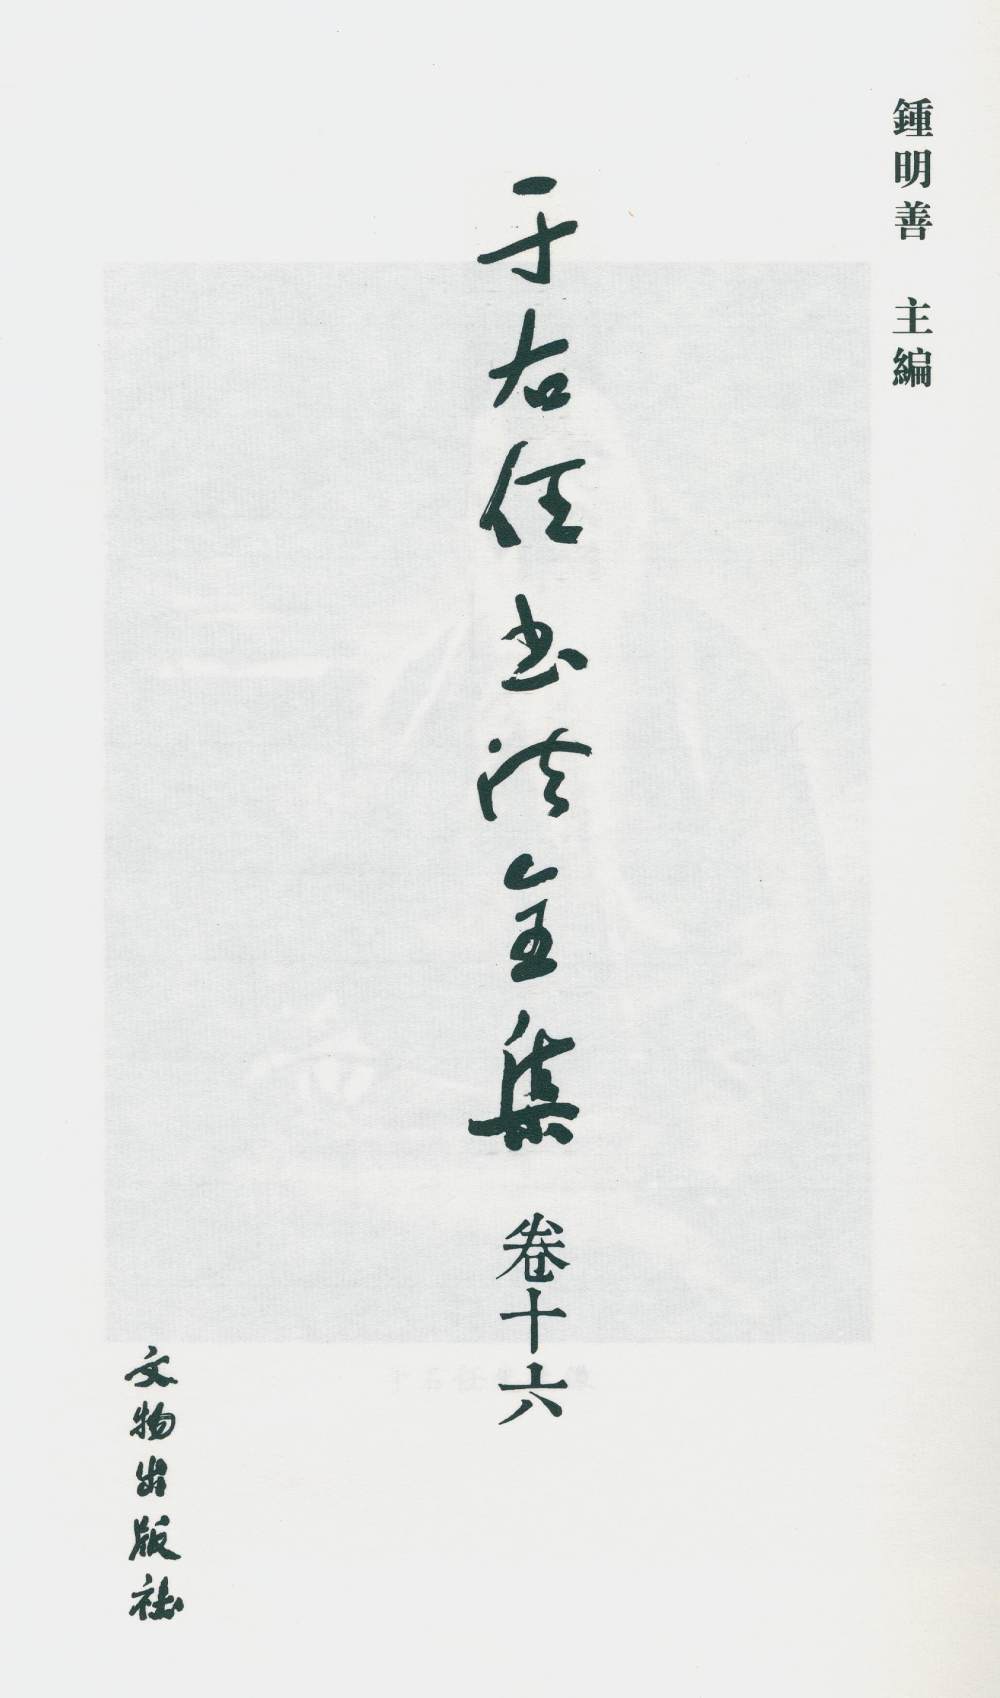 鍾明善 主編
于右任书法全集 卷十六
文物出版社